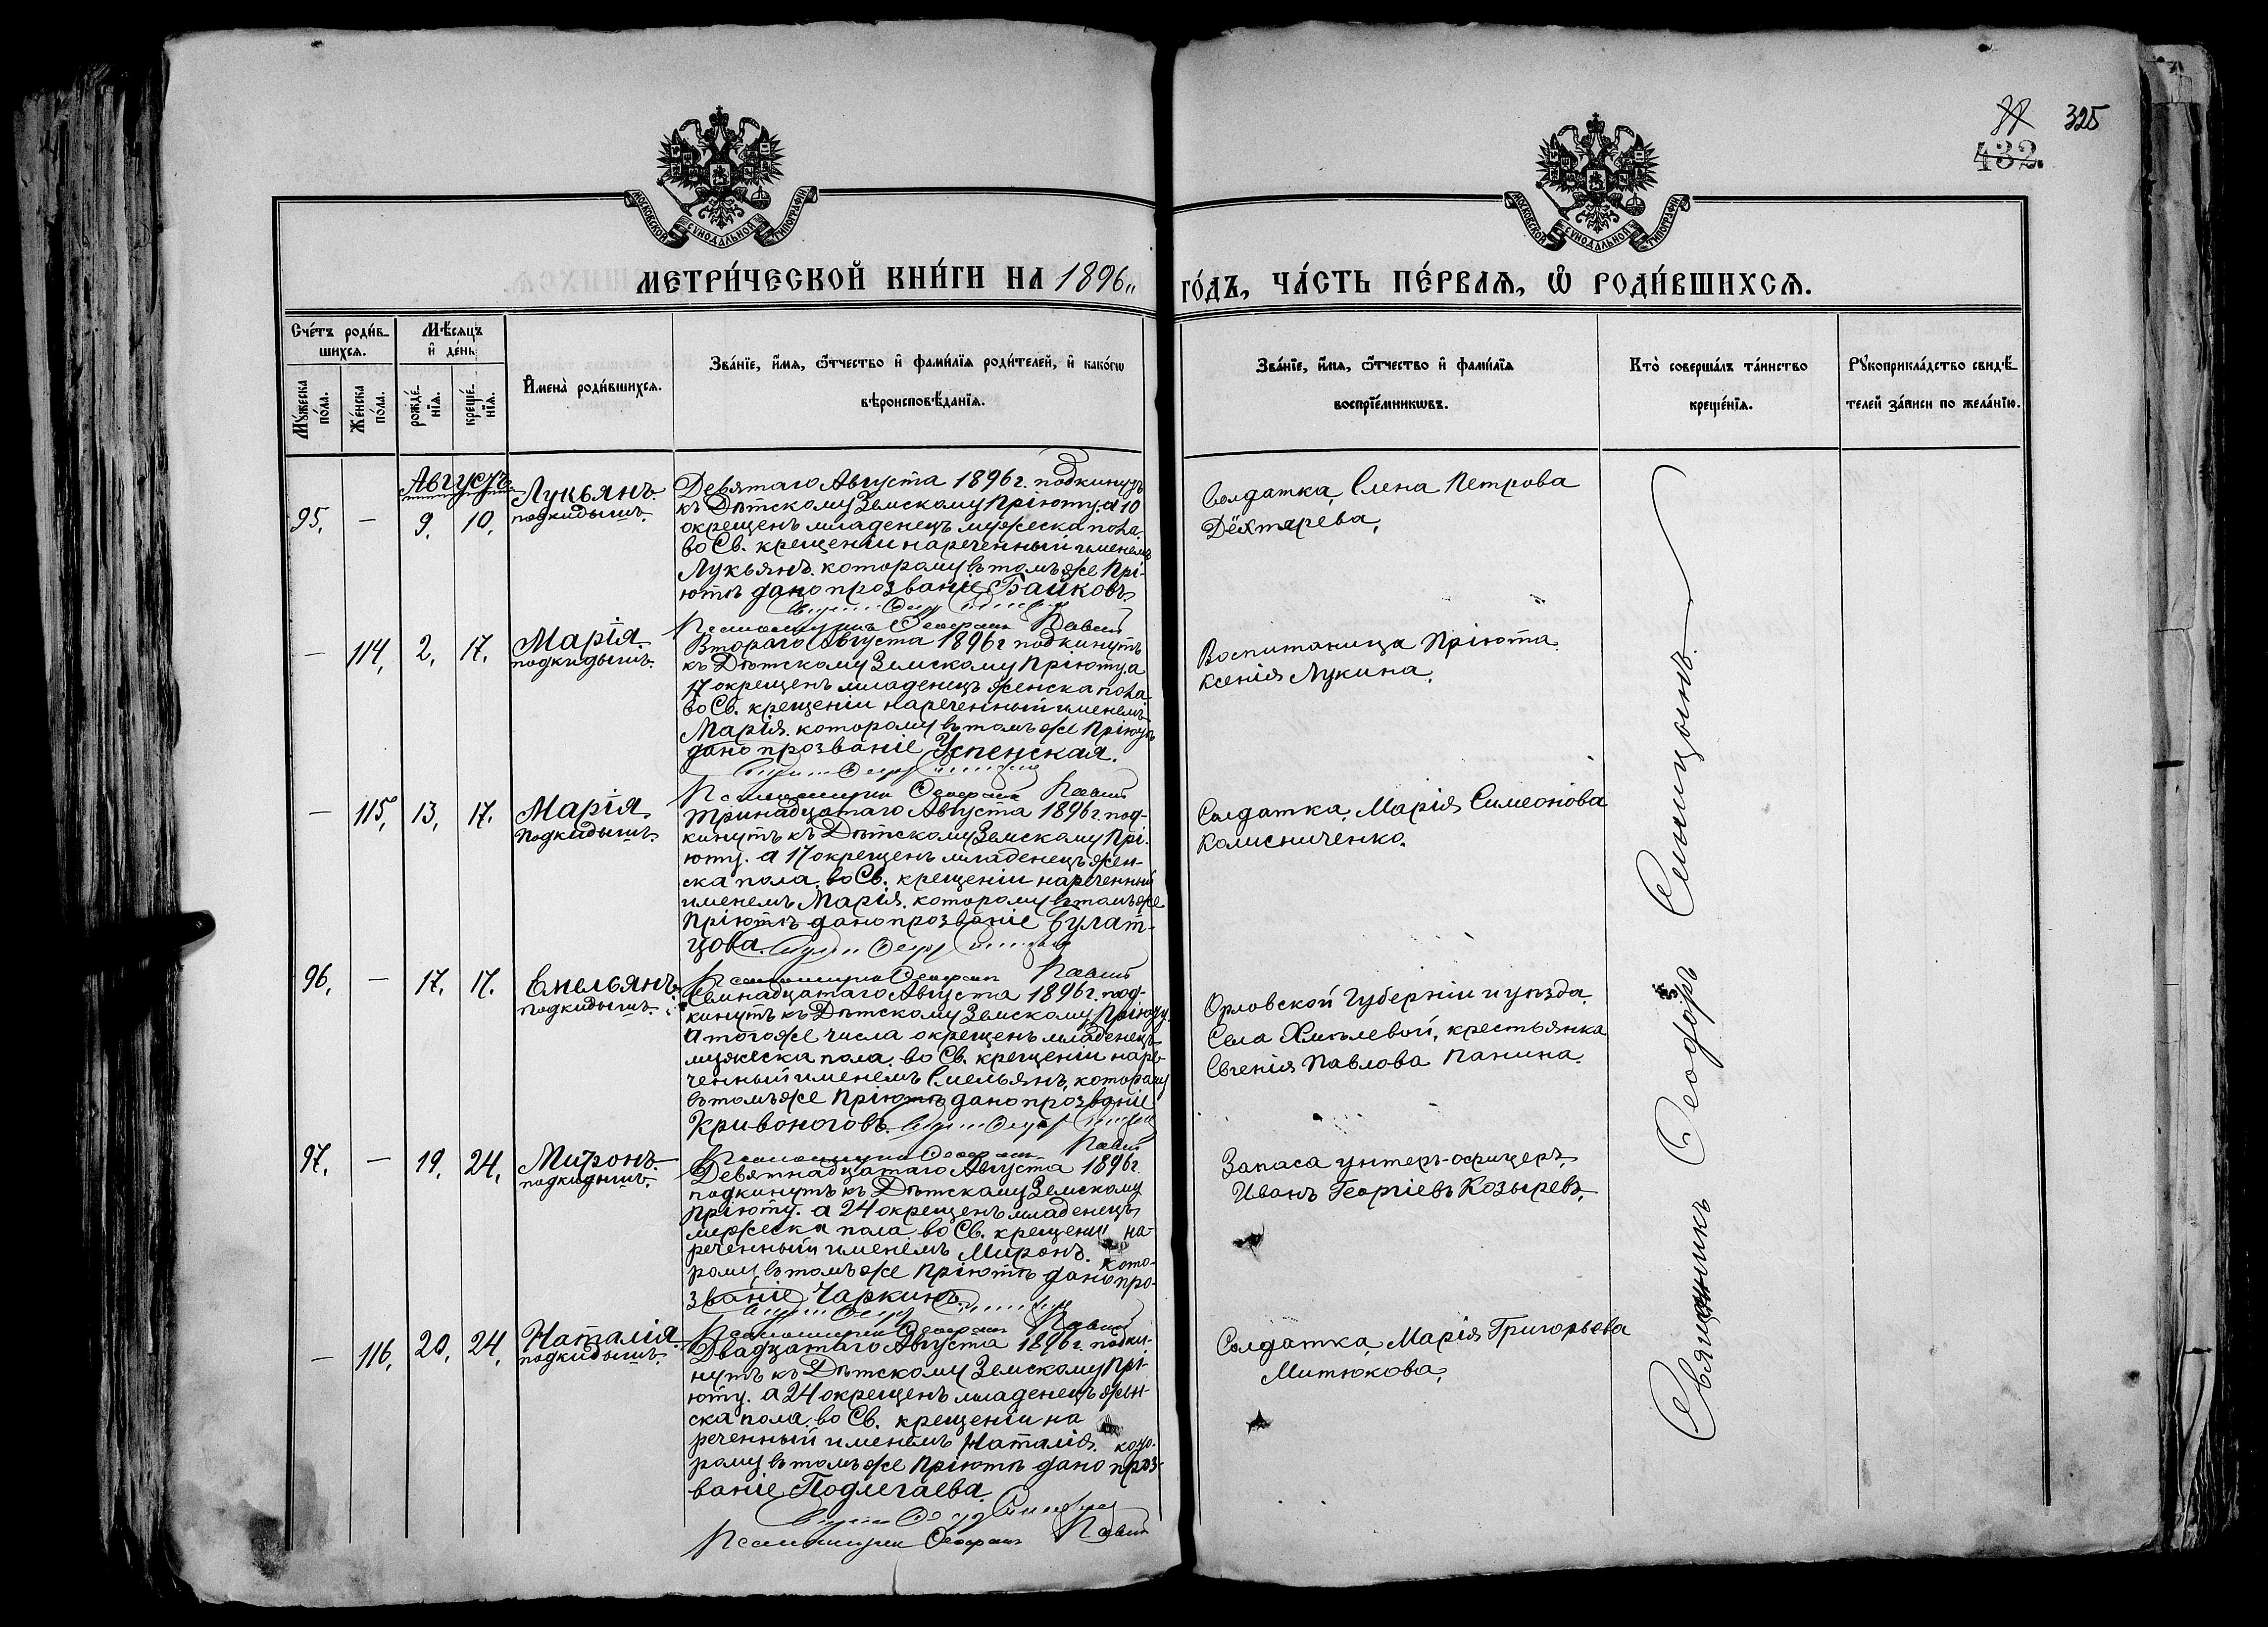 325
432.
МОСКОВСКОЙ СѴНОДАЛЬНОЙ ТИПОГРАФІИ
МОСКОВСКОЙ СѴНОДАЛЬНОЙ ТИПОГРАФІИ
МЕТРИ́ЧЕСКОЙ КНИ́ГИ НА 1896 ГО́ДЪ, ЧА́СТЬ ПЕ́РВАѦ, Ѽ РОДИ́ВШИХСѦ.
Сче́тъ роди́в-
шихсѧ.
Мꙋ́жеска
по́ла.
Же́нска
по́ла.
Мѣ́сѧцъ
и҆ де́нь
рожде́-
нїѧ.
креще́-
нїѧ.
И҆мена̀ роди́вшихсѧ.
Зва́нїе, и҆́мѧ, ѻ҆́тчество и҆ фами́лїѧ роди́телей, и҆ како́гѡ
вѣроисповѣ́данїѧ.
Зва́нїе, и҆́мѧ, ѻ҆́тчество и҆ фами́лїѧ
воспрїе́мникѡвъ.
Кто̀ соверша́лъ та́инство
креще́нїѧ.
Рꙋкоприкла́дство свидѣ́-
телей за́писи по жела́нїю.
Августъ
95. — 9. 10. Лукьянъ
подкидышъ.
Девятаго Августа 1896 г. подкинутъ
къ Дѣтскому Земскому Пріюту, а 10
окрещенъ младенецъ мужеска пола,
во Св. крещеніи нареченный именемъ
Лукьянъ, которому въ томъ же Прі-
ютѣ дано прозваніе Байковъ.
Солдатка, Елена Петрова
Дёхтярева.
— 114. 2. 17. Марія
подкидышъ.
Второго Августа 1896 г подкинутъ
къ Дѣтскому Земскому Пріюту, а
17 окрещенъ младенецъ женска пола
во Св. крещеніи нареченный именемъ
Марія, которому въ томъ же Пріютѣ
дано прозваніе Успенская.
Воспитаница Пріюта
Ксенія Лукина.
— 115. 13. 17. Марія
подкидышъ.
Тринадцатаго Августа 1896 г. под-
кинутъ къ Дѣтскому Земскому Прі-
юту. а 17 окрещенъ младенецъ жен-
ска пола, во Св. крещеніи нареченный
именемъ Марія, которому въ томъ же
Пріютѣ дано прозваніе Булат-
цова.
Солдатка, Марія Симеонова
Колисниченко.
96. — 17. 17. Емельянъ
подкидышъ.
Семнадцатаго Августа 1896 г. под-
кинутъ къ Дѣтскому Земскому Пріюту
а того же числа окрещенъ младенецъ
мужеска пола, во Св. крещеніи наре-
ченный именемъ Емельянъ, которому
въ томъ же Пріютѣ дано прозваніе
Кривоноговъ.
Орловской Губерніи и уѣзда
Села Хмѣлевой, крестьянка
Евгенія Павлова Панина.
97. — 19. 24. Миронъ
подкидышъ.
Девятнадцатаго Августа 1896 г.
подкинутъ къ Дѣтскому Земскому
Пріюту. а 24 окрещенъ младенецъ
мужеска пола, во Св. крещеніи на-
реченный именемъ Миронъ, кото-
рому въ томъ же Пріютѣ дано про-
званіе Чаркинъ.
Запаса унтеръ-офицеръ,
Иванъ Георгіевъ Козыревъ,
— 116. 20. 24. Наталія
подкидышъ.
Двадцатаго Августа 1896 г. подки-
нутъ къ Дѣтскому Земскому Прі-
юту. а 24 окрещенъ младенецъ жен-
ска пола, во Св. крещеніи на
реченный именемъ Наталія, кото-
рому въ томъ же Пріютѣ дано проз-
ваніе Подлегаева.
Солдатка, Марія Григорьева
Митюкова,
Священникъ Ѳеодоръ Синицынъ